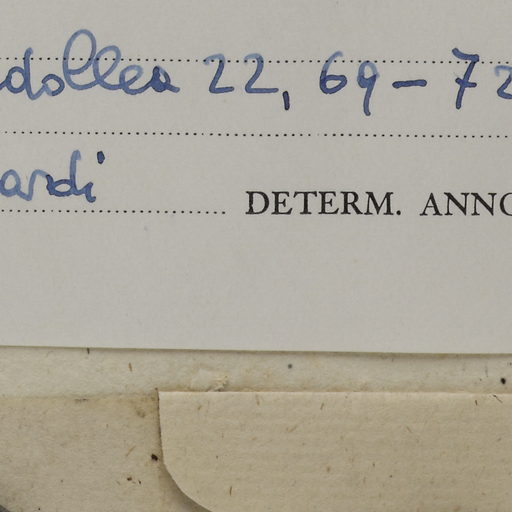 dollea 22, 69-72
ardi
DETERM. ANNO